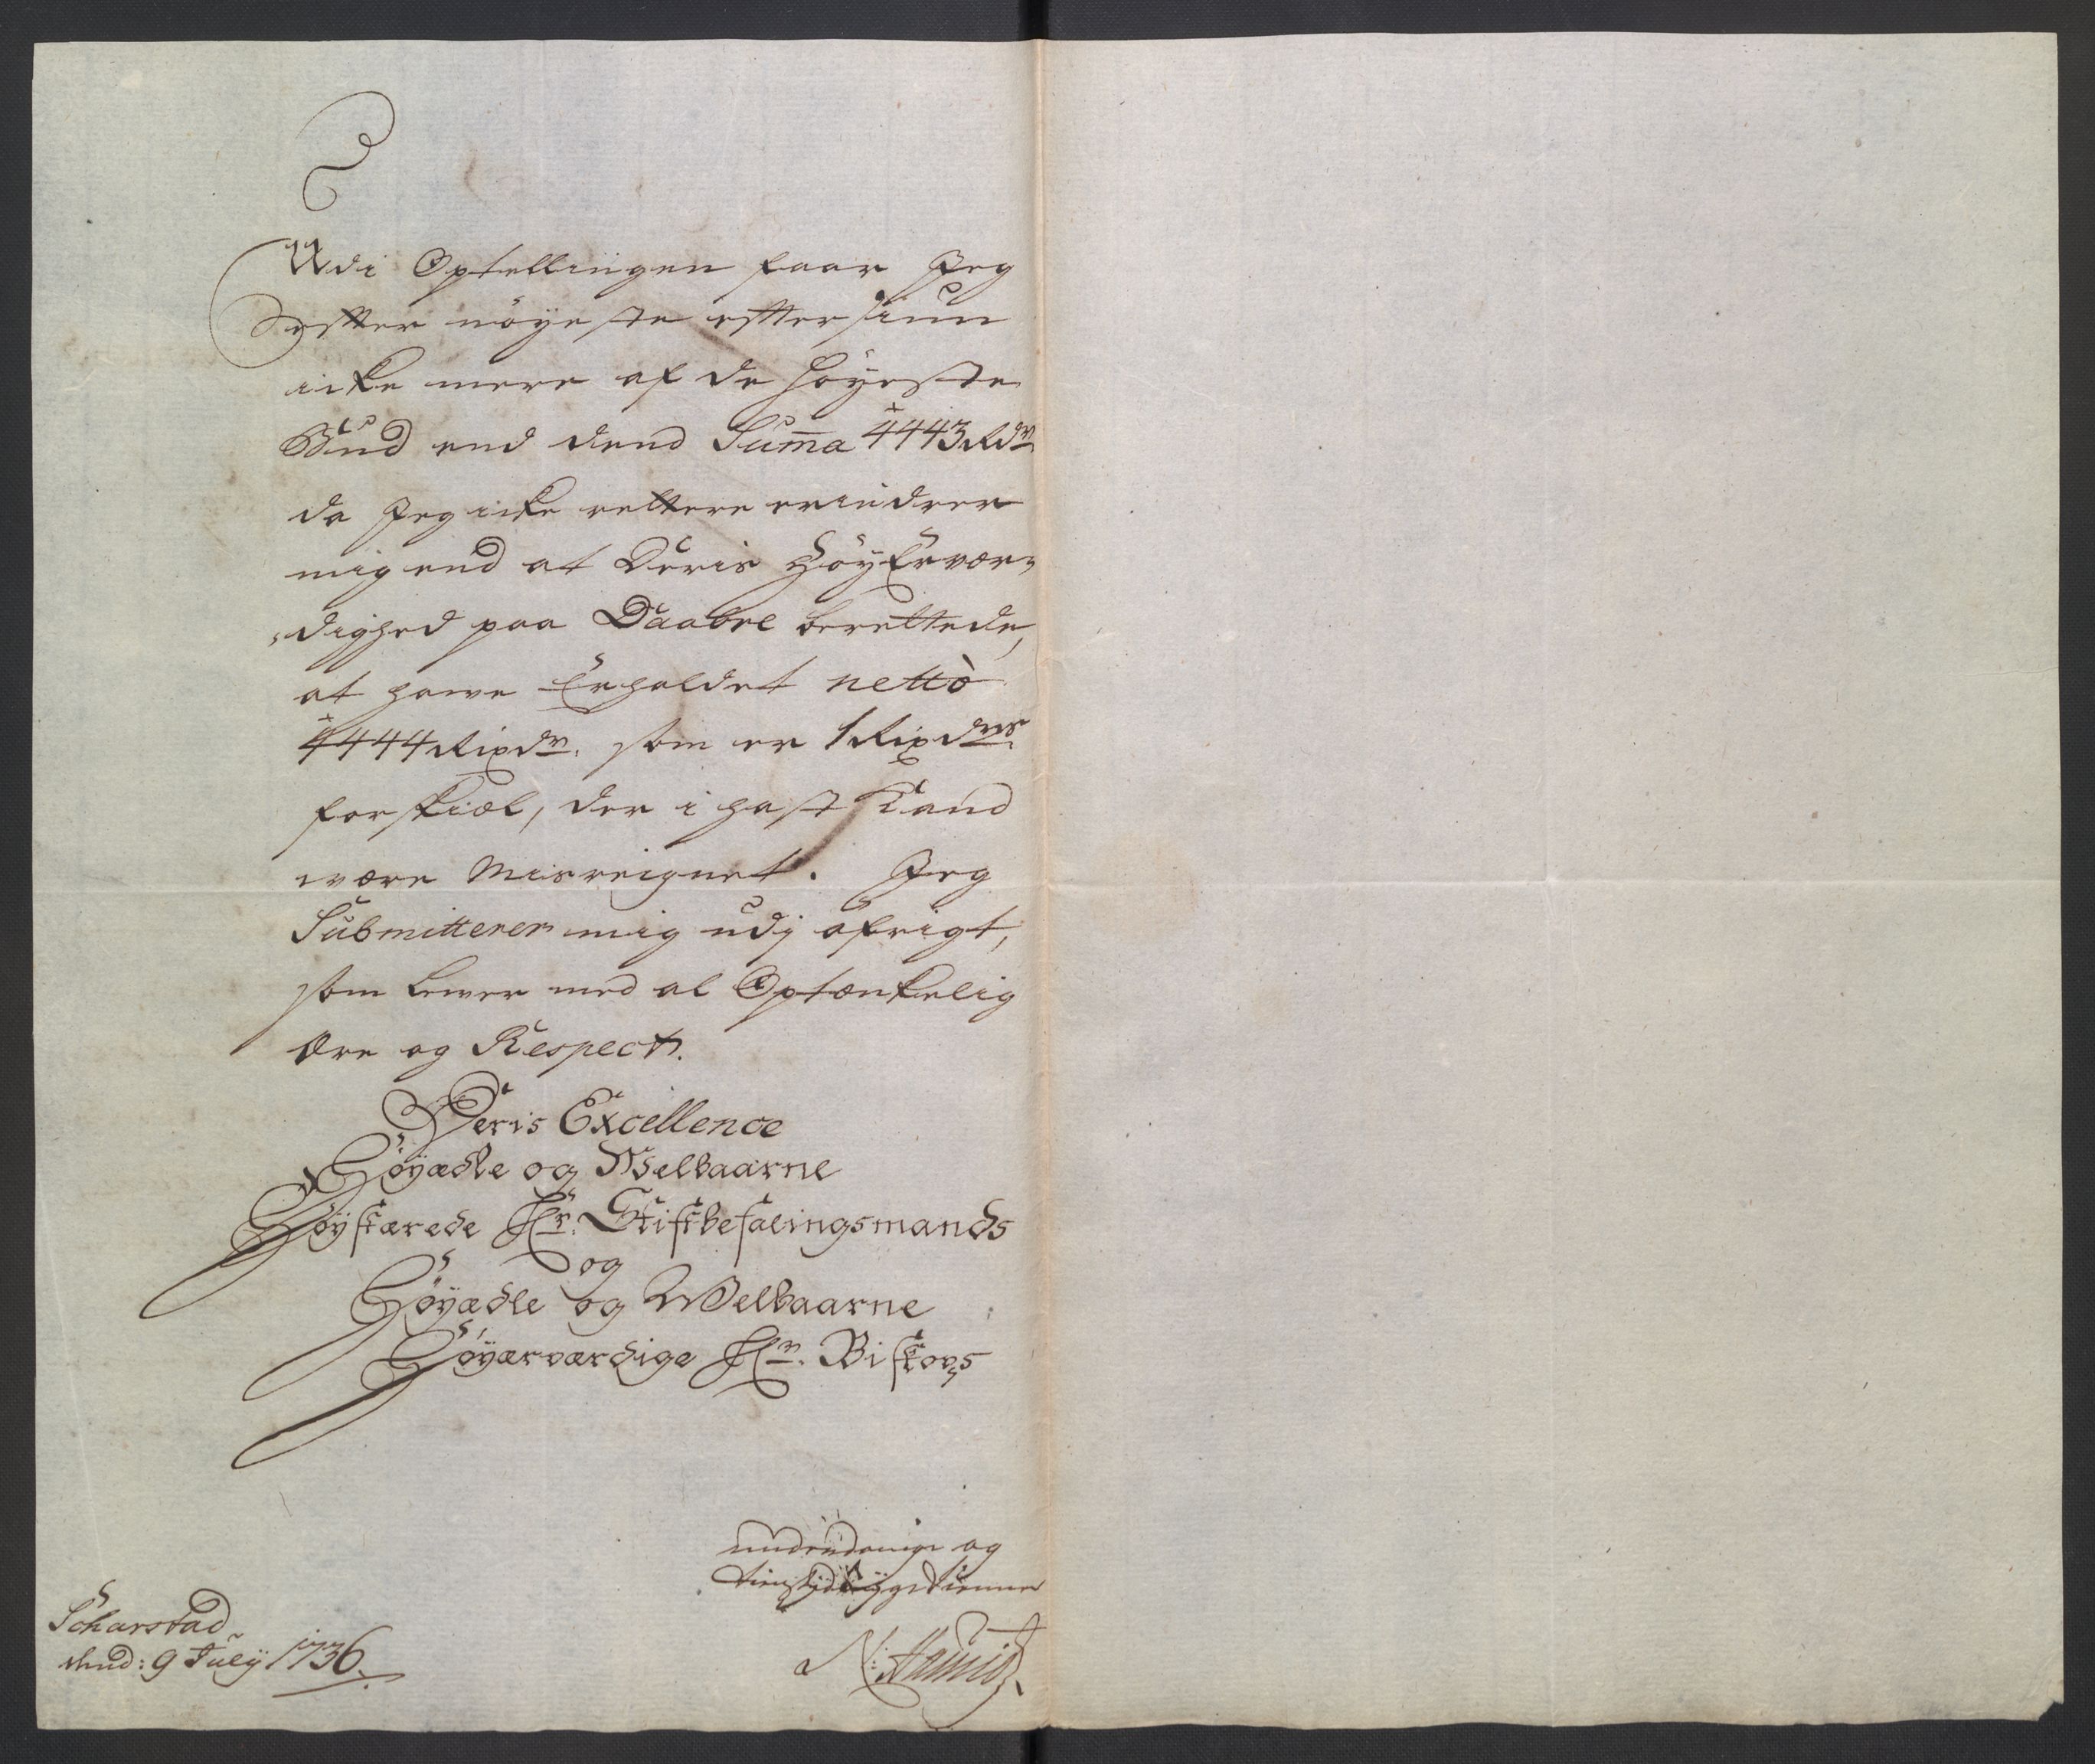 Udi Optellingen faar Jeg
efter nöyeste eftersiun
icke mere af de høyeste
Bud end dend Sum̅a 4443 Rdr
da Jeg icke rettere erindrer
mig end at Deris HøyErvær„
„dighed paa Daabel berettede,
at hawe Erholdet nettò
4444 Rixdr. som er 1 Rixdrs
forskiæl, der i hast Kand
være Misreignet. Jeg
Submitterer mig udj öfrigt,
som lewer med al Optænkelig
Ære og Respect.
Deris Excellence
Höyædle og Welbaarne
Höystærede Hr. Stiftbefalingsmands
og
Höyædle og Welbaarne
Höyærværdige Hr. Biskops
underdanige og
tienner
Scharstad
dend: 9 July 1736.
N: